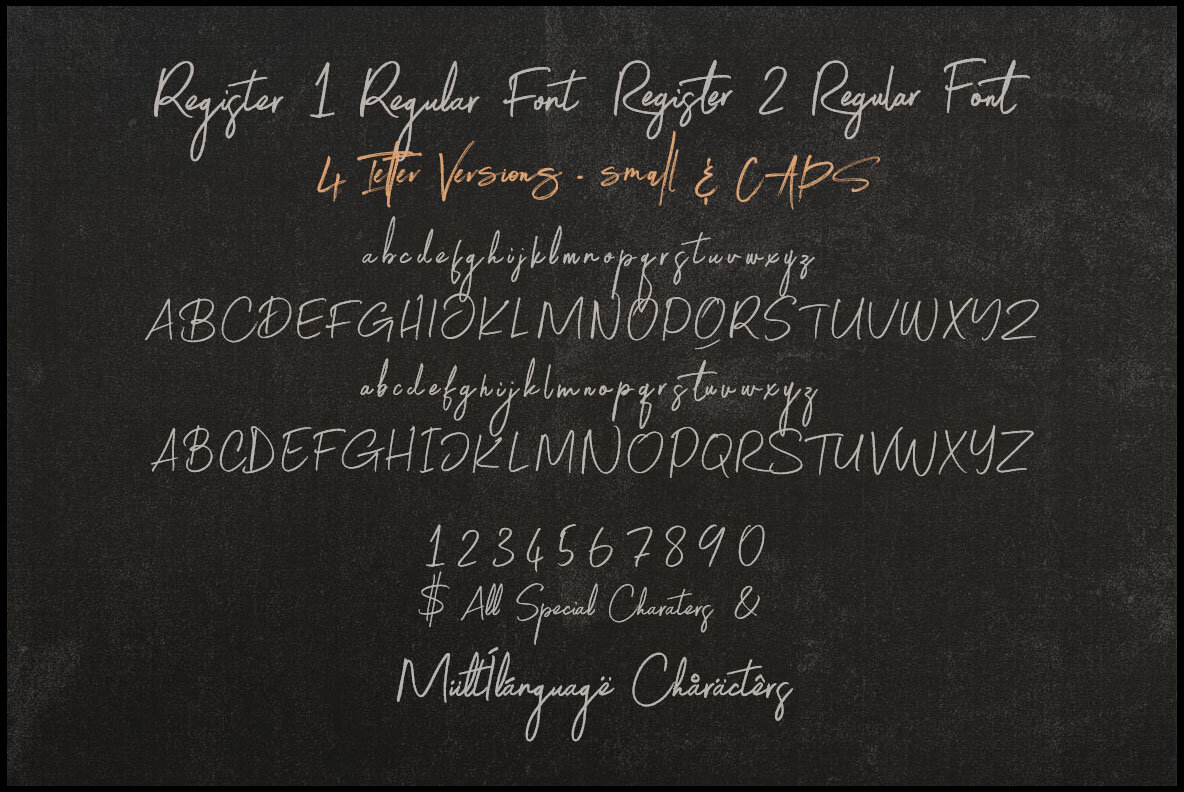 Register 1 Regular Font Register 2 Regular Font
4 letter Versions . small & CAPS
abcdefghijklmnopqrstuvwxyz
ABCDEFGHIJKLMNOPQRSTUVWXYZ
abcdefghijklmnopqrstuvwxyz
ABCDEFGHIJKLMNOPQRSTUVWXYZ
1234567890
$ All Special Charaters &
MültÍlánguagë Chåräctêrs